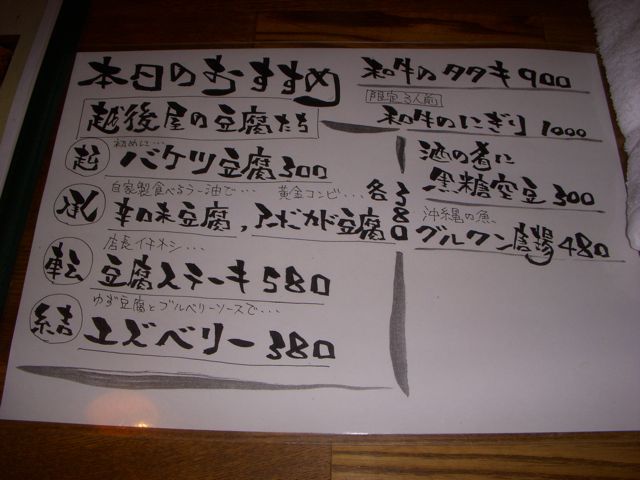 本日のおすすめ
越後屋の豆腐たち
初めに・・・
越 バケツ豆腐 300
自家製食べるラー油で・・・ 黄金コンビ・・・
承 辛口味豆腐, アボガド豆腐 各380
店長イチオシ・・・
転 豆腐ステーキ 580
ゆず豆腐とブルーベリーソースで・・・
結 ユズベリー 380
和牛のタタキ 900
限定3人前
和牛のにぎり 1000
酒の肴に
黒糖空豆 300
沖縄の魚
グルクン唐揚 480